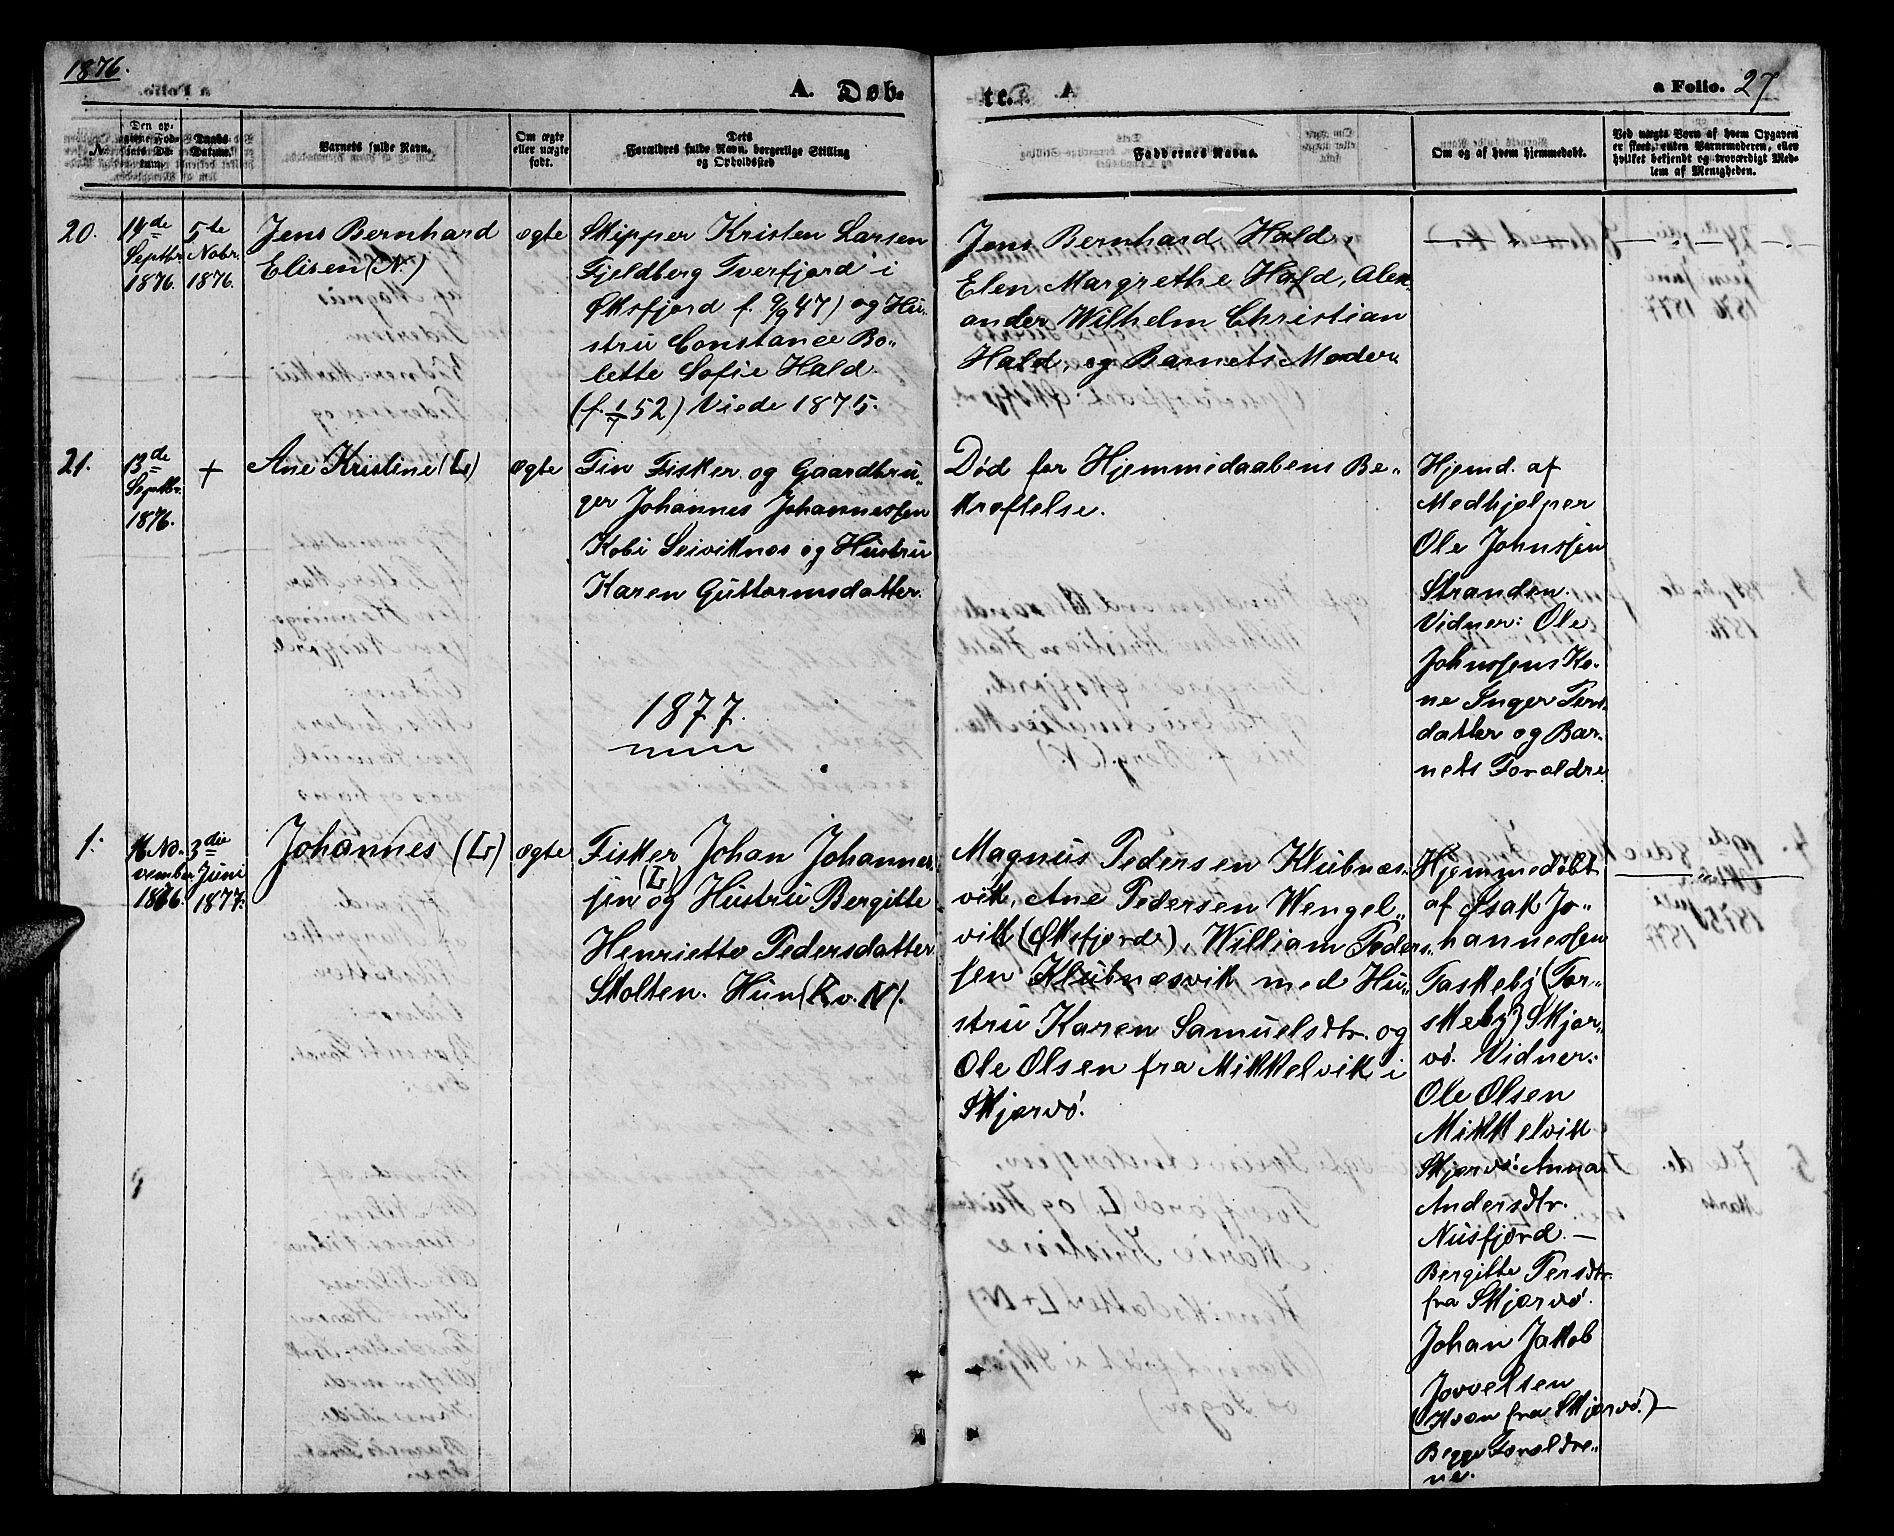 1876.
A. Døb-
te. A
a Folio. 27
No.
Den op-
givne Fød-
sels Da-
tum.
Daabs
Datum.
Barnets fulde Navn.
Om ægte
eller uægte
født.
Dets
Forældres fulde Navn, borgerlige Stilling
og Opholdssted
Faddernes Navne.
Om og af hvem hjemmedøbt.
Ved uægte Børn af hvem Opgaven
er skeet, enten Barnemoderen, eller
hvilket bekjendt og troværdigt Med-
lem af Menigheden.
20.
14de
Septbr.
1876.
5te
Nobr.
1876.
Jens Bernhard
Elisen (N.)
ægte
Skipper Kristen Larsen
Fjeldberg Tverfjord i
Øksfjord f. 9/9 47) og Hu-
stru Constance Bo-
lette Sofie Hald.
(f. 1/7 52) Viede 1875.
Jens Bernhard Hald,
Elen Margrethe Hald, Alex-
ander Wilhelm Christian
Hald, og Barnets Moder.
21.
13de
Septbr.
1876.
+
Ane Kristine (L)
ægte
Fin Fisker og Gaardbru-
ger Johannes Johannessen
Kobi Seiviknes og Hustru
Karen Guttormsdatter.
Død før Hjemmedaabens Be-
kræftelse.
Hjemd. af
Medhjelper
Ole Johnssen
Stranden.
Vidner: Ole
Johnssens Ko-
ne Inger Pers-
datter og Bar-
nets Forældre
1877.
1.
16 No-
vember
1876.
3die
Juni
1877.
Johannes (L)
ægte
Fisker Johan Johannes-
sen (L) og Hustru Bergitte
Henriette Pedersdatter
Stolten. Hun (Kv. N).
Magnus Pedersen Klubnæs-
vik, Ane Pedersen Wengel-
vik (Øksfjord), William Peder-
sen Klubnæsvik med Hu-
stru Karen Samuelsdtr. og
Ole Olsen fra Mikkelvik i
Skjærvø.
Hjemmedøbt
af Isak Jo-
hannessen
Taskeby (Tor-
skeby) Skjær-
vø. Vidner:
Ole Olsen
Mikkelvik
Skjervø: Anna
Andersdtr.
Nusfjord. —
Bergitte Persdtr.
fra Skjærvø.
Johan Jakob
Jovvelsen
(Kvæn fra Skjærvø.)
Begge Forældre-
ne.